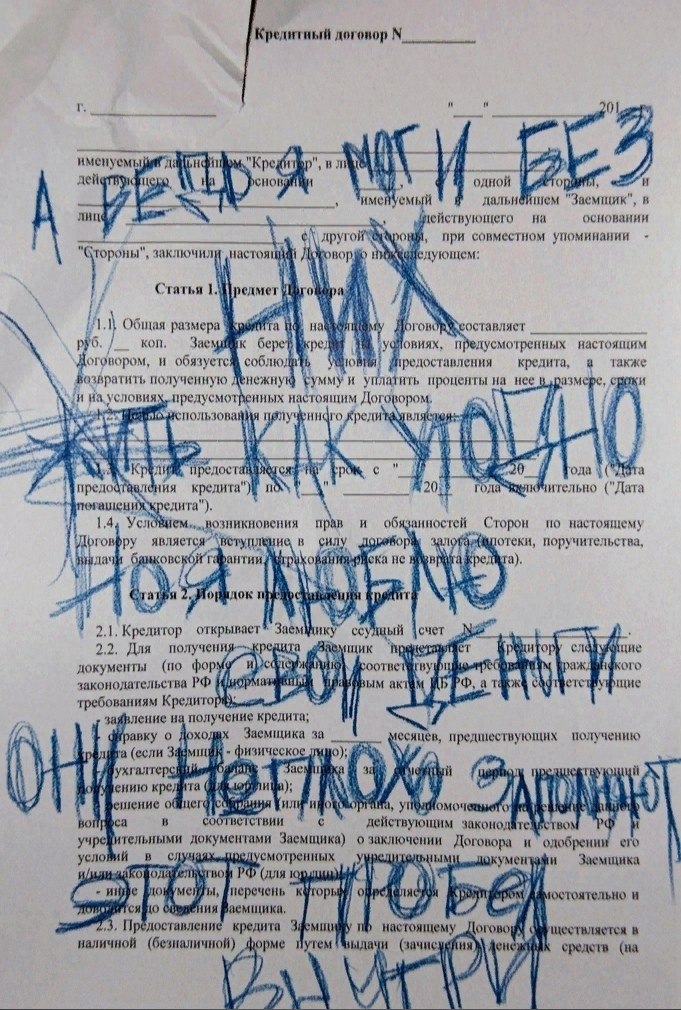 Кредитный договор N__________
г. __________________ "____" ______________ 201
А ВЕДЬ Я МОГ И БЕЗ
именуемый в дальнейшем "Кредитор", в лице
действующего на основании __________, с одной стороны, и
__________, именуемый в дальнейшем "Заемщик", в
лице __________, действующего на основании
__________ с другой стороны, при совместном упоминании -
"Стороны", заключили настоящий Договор о нижеследующем:
НИХ
Статья 1. Предмет Договора
1.1. Общая размера кредита по настоящему Договору составляет ______________
руб. __ коп. Заемщик берет кредит на условиях, предусмотренных настоящим
Договором, и обязуется соблюдать условия предоставления кредита, а также
возвратить полученную денежную сумму и уплатить проценты на нее в размере, сроки
и на условиях, предусмотренных настоящим Договором.
1.2. Целью использования полученного кредита является:
ЖИТЬ КАК УГОДНО
1.3. Кредит предоставляется на срок с "__" __________ 20__ года ("Дата
предоставления кредита") по "__" __________ 20__ года включительно ("Дата
погашения кредита").
1.4. Условием возникновения прав и обязанностей Сторон по настоящему
Договору является вступление в силу договора залога (ипотеки, поручительства,
выдачи банковской гарантии, страхования риска не возврата кредита).
НО Я ЛЮБЛЮ
Статья 2. Порядок предоставления кредита
2.1. Кредитор открывает Заемщику ссудный счет N____________________.
2.2. Для получения кредита Заемщик представляет Кредитору следующие
документы (по форме и содержанию, соответствующие требованиям гражданского
законодательства РФ и нормативным правовым актам ЦБ РФ, а также соответствующие
требованиям Кредитора):
СВОИ ДЕНЬГИ
- заявление на получение кредита;
- справку о доходах Заемщика за ______ месяцев, предшествующих получению
кредита (если Заемщик - физическое лицо);
ОНИ НЕПЛОХО ЗАПОЛНЯЮТ
- бухгалтерский баланс Заемщика за отчетный период, предшествующий
получению кредита (для юрлица);
- решение общего собрания (или иного органа, уполномоченного на решение данного
вопроса в соответствии с действующим законодательством РФ и
учредительными документами Заемщика) о заключении Договора и одобрении его
условий в случаях, предусмотренных учредительными документами Заемщика
и/или законодательством РФ (для юрлица);
ЭТОТ ПРОБЕЛ
- иные документы, перечень которых определяется Кредитором самостоятельно и
доводится до сведения Заемщика.
2.3. Предоставление кредита Заемщику по настоящему Договору осуществляется в
наличной (безналичной) форме путем выдачи (зачисления) денежных средств (на
ВНУТРИ